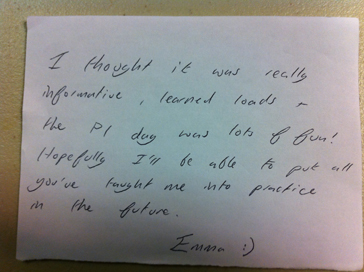 I thought it was really
informative, learned loads ~
the P1 day was lots of fun!
Hopefully I'll be able to put all
you've taught me into practice
in the future.
Emma :)